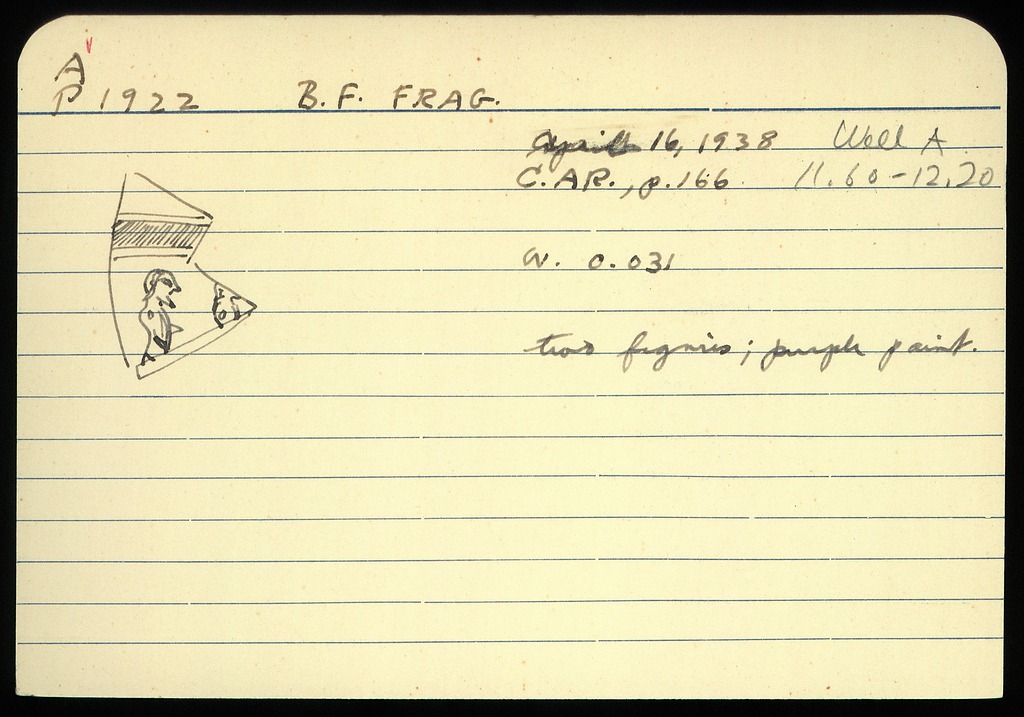 A
P 1922 B.F. FRAG.
April 16, 1938 Well A
C.AR., p.166 11.60-12.20
W. 0.031
two figures; purple paint.